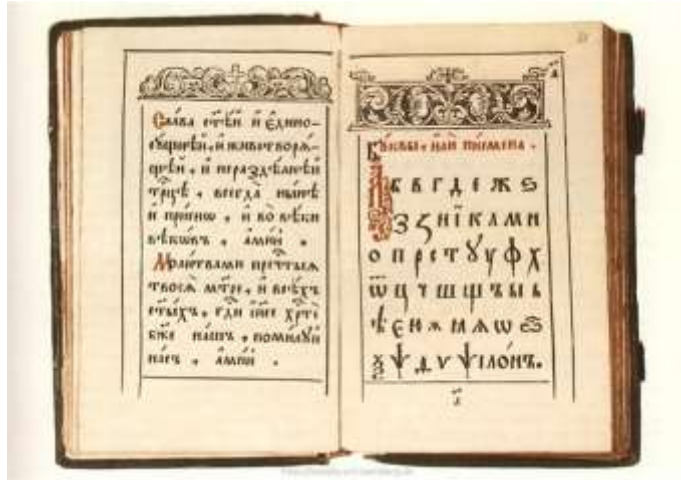 Сла́ва ст҃ѣ́й и҆ є҆дино-
сꙋ́щнѣй, и҆ животворѧ́-
щей, и҆ нераздѣ́лнѣй
трⷪ҇цѣ, всегда̀ ны́нѣ
и҆ при́снѡ, и҆ во вѣ́ки
вѣкѡ́въ, а҆ми́нь.
Моли́твами пречⷭ҇тыѧ
твоеѧ̀ мт҃ре, и҆ всѣ́хъ
ст҃ы́хъ, гдⷭ҇и і҆и҃се хрⷭ҇тѐ
бж҃е на́шъ, поми́лꙋй
на́съ, а҆ми́нь.
Бꙋ́квы, и҆лѝ писмена̀.
А Б В Г Д Е Ж Ѕ
З ꙁ и ї к л м н
о п р с т ꙋ у ф х
ѿ ц ч ш щ ъ ы ь
ѣ є ю ѫ ꙗ ѧ ѡ
ѯ ѱ ѵ ѱило́нъ.